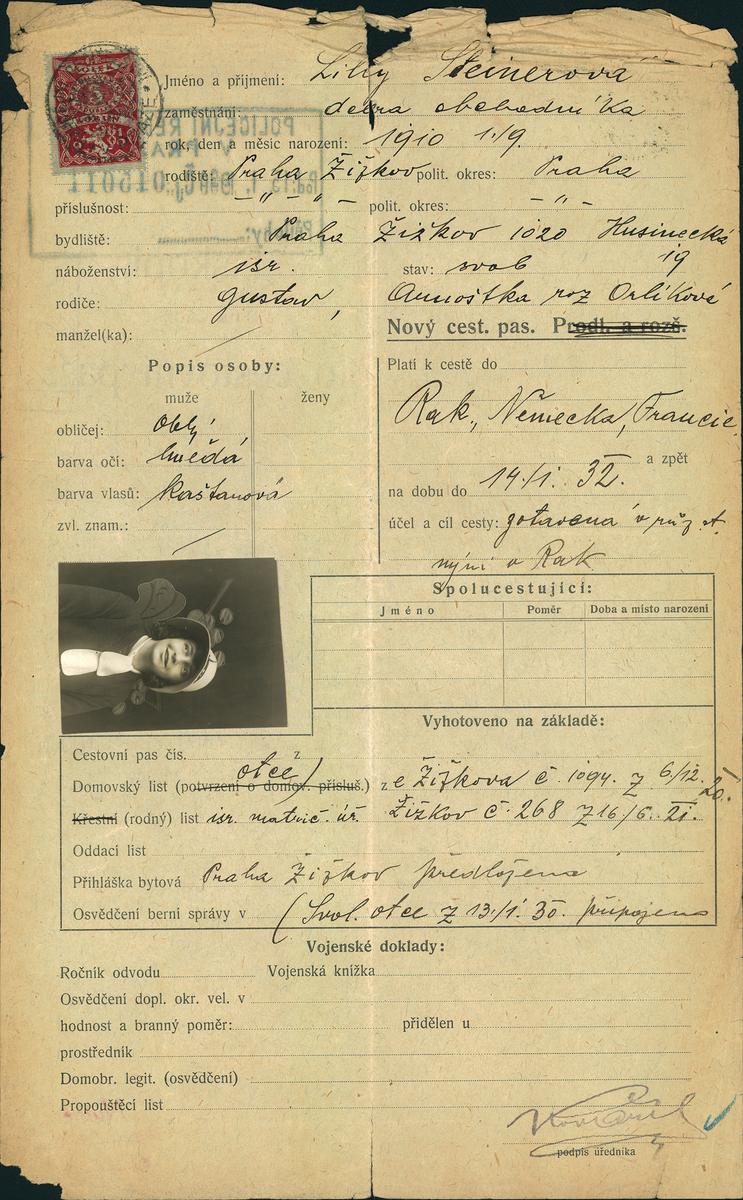 Jméno a přijmení: Lilly Steinerová
zaměstnání: dcera obchodníka
rok, den a měsíc narození: 1910 1./9.
rodiště: Praha Žižkov polit. okres: Praha
příslušnost: — " — " — polit. okres: — " —
bydliště: Praha Žižkov 1020 Husinecká 19
náboženství: isr. stav: svob
rodiče: Gustav, Arnoštka roz Orlíková
manžel(ka):
Nový cest. pas. Prodl. a rozš.
Popis osoby:
muže ženy
obličej: oblý
barva očí: hnědá
barva vlasů: kaštanová
zvl. znam.:
Platí k cestě do
Rak., Německa, Francie,
a zpět
na dobu do 14/1. 32.
účel a cíl cesty: v růz. st.
nyní v Rak
Spolucestující:
Jméno Poměr Doba a místo narození
Vyhotoveno na základě:
Cestovní pas čís. z
Domovský list (potvrzení o domov. přísluš.) otce) z e Žižkova č. 1094. z 6/12. 20.
Křestní (rodný) list isr. matrič. úř. Žižkov č. 268 z 16/6. 21.
Oddací list
Přihláška bytová Praha Žižkov předložena
Osvědčení berní správy v (Svol. otce z 13./1. 30. připojeno
Vojenské doklady:
Ročník odvodu Vojenská knížka
Osvědčení dopl. okr. vel. v
hodnost a branný poměr: přidělen u
prostředník
Domobr. legit. (osvědčení)
Propouštěcí list
podpis úředníka